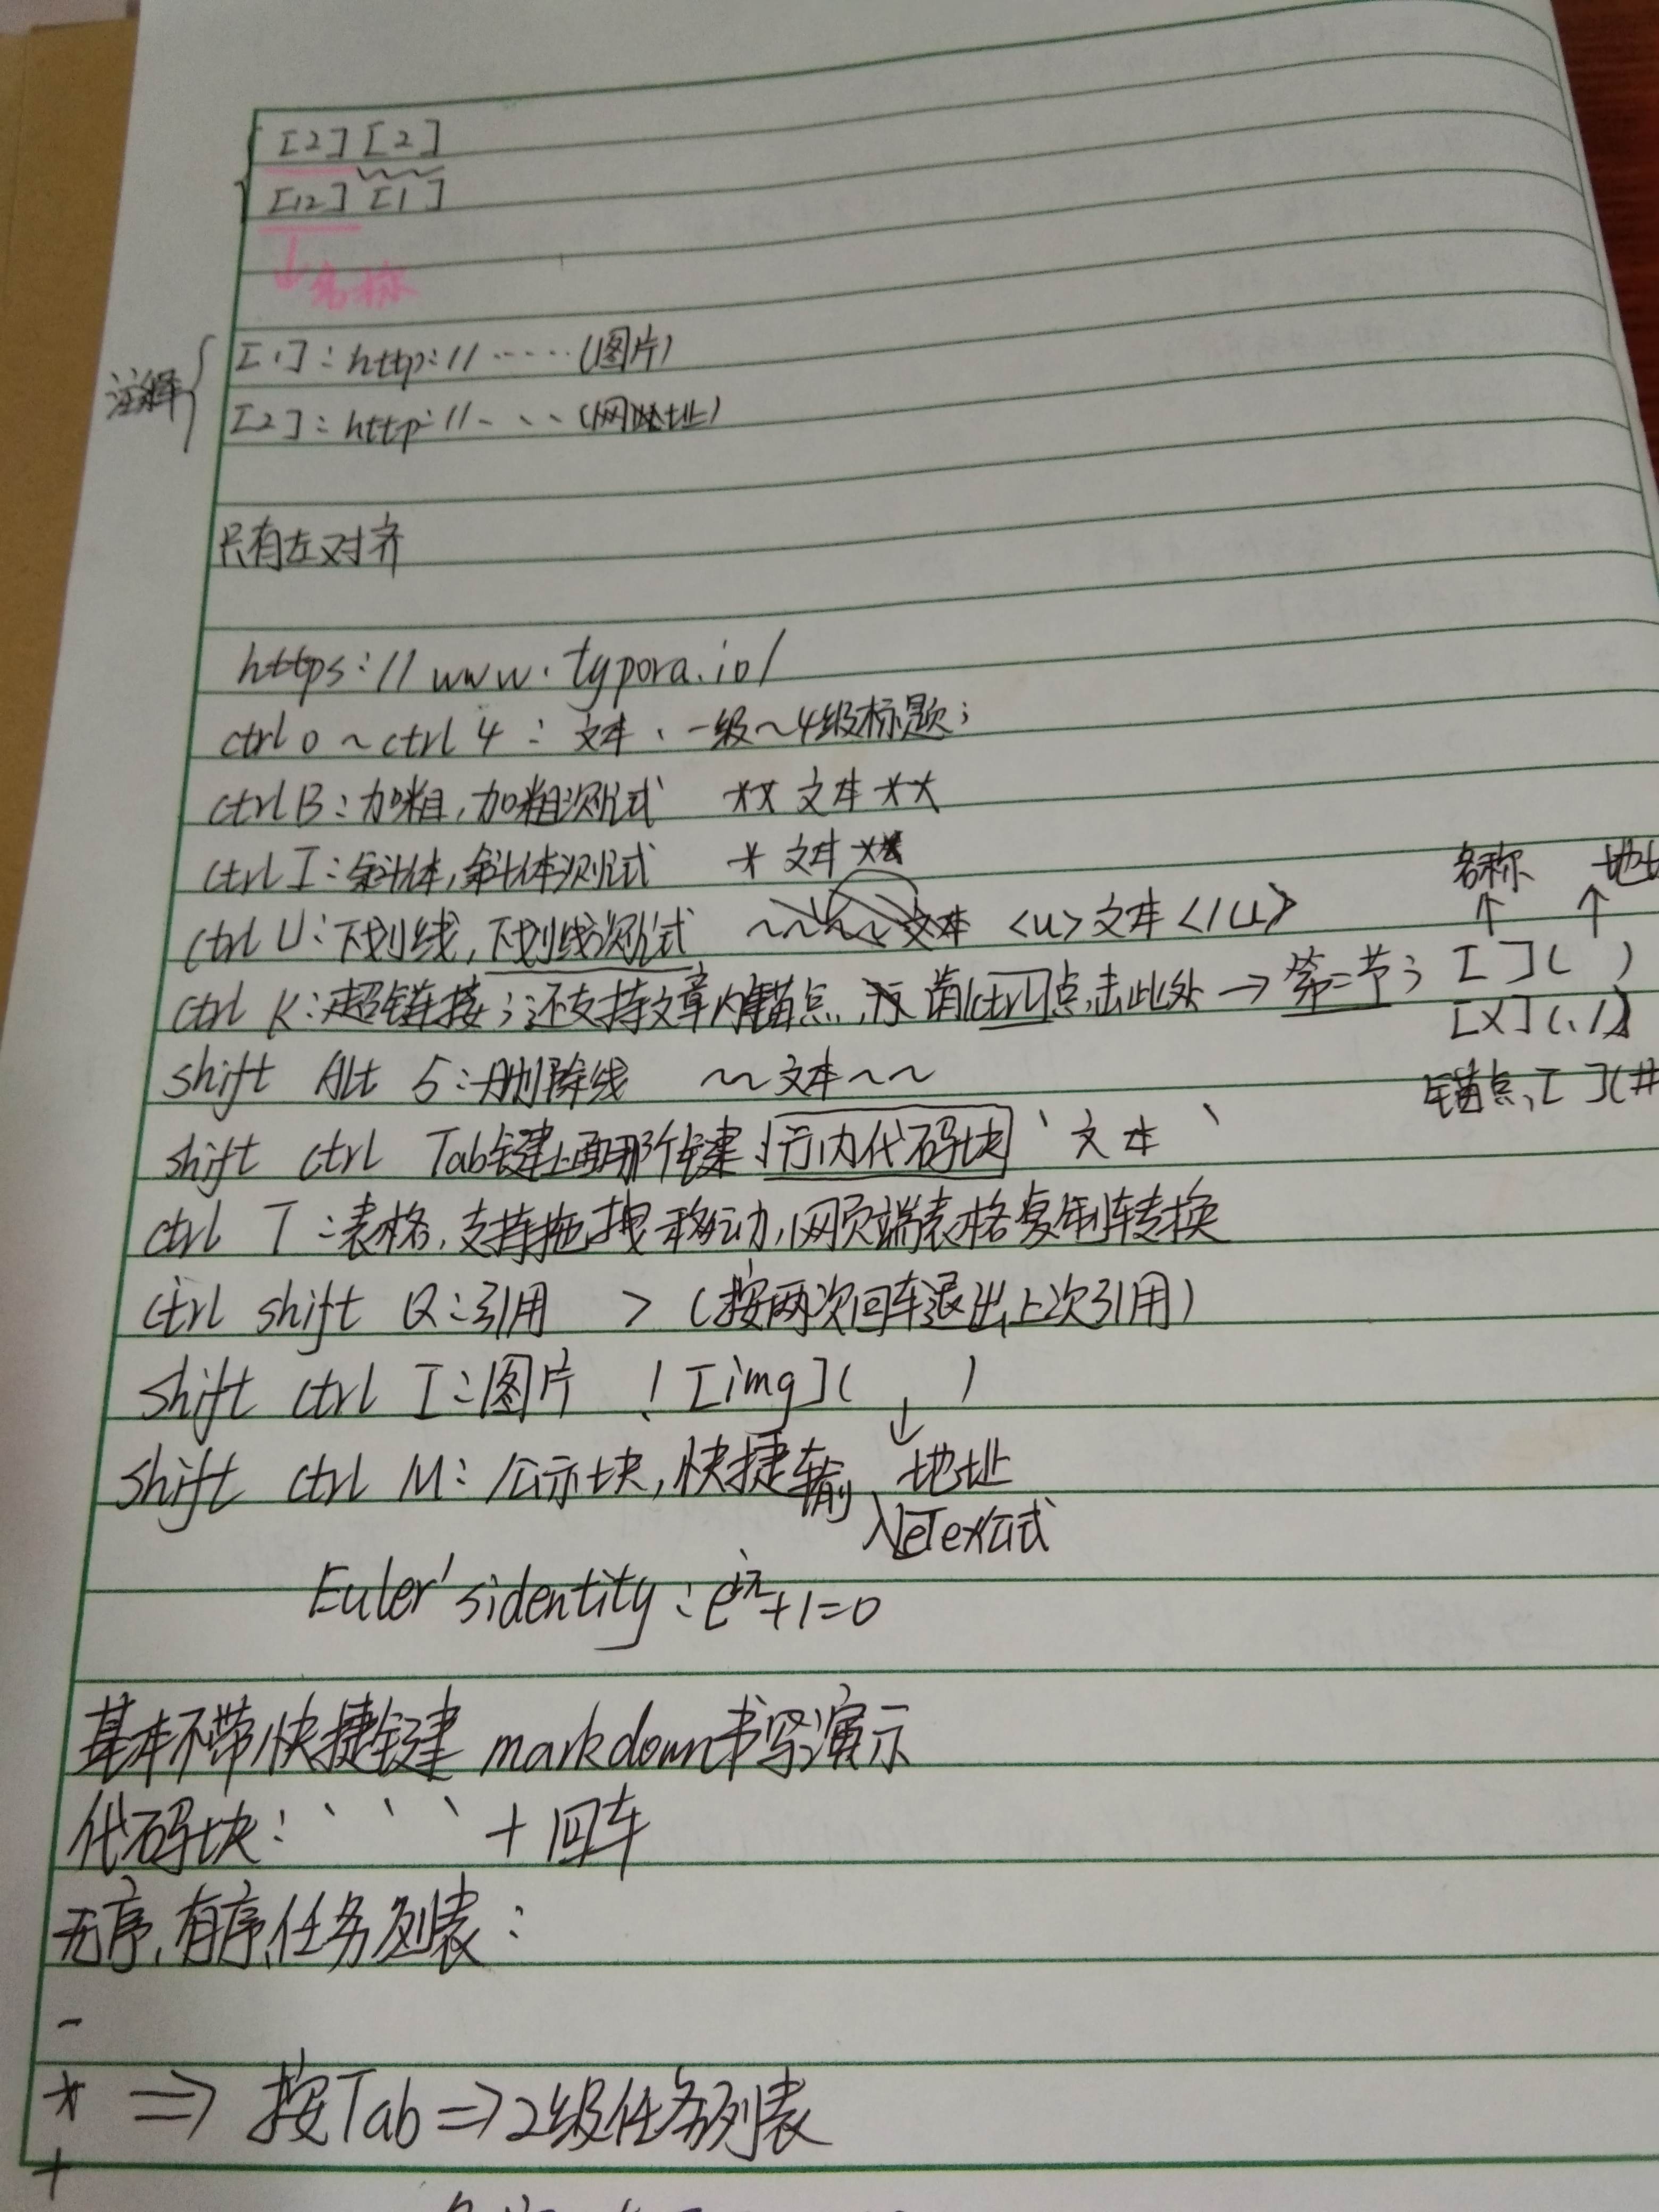 [2][2]
[12][1]
↓名称
注释
[1]: http://······(图片)
[2]: http://、、、(网络地址)
只有左对齐
https://www.typora.io/
ctrl 0 ~ ctrl 4: 文本、一级~4级标题;
ctrl B: 加粗,加粗测试 **文本**
ctrl I: 斜体,斜体测试 *文本*
名称 地址
ctrl U: 下划线,下划线测试 <u>文本</u>
↑ ↑
ctrl K: 超链接;还支持文章内锚点, 请ctrl点击此处→第二节; [ ]( )
[X](./)
shift Alt 5: 删除线 ~~文本~~
锚点,[ ](#
shift ctrl Tab键上面那个键 行内代码块 `文本`
ctrl T: 表格,支持拖拽移动,网页端表格复制转换
ctrl shift Q: 引用 > (按两次回车退出上次引用)
shift ctrl I: 图片 ![img]( )
↓
shift ctrl M: 公示块,快捷输 地址
入eTex公式
Euler's identity: e^iπ+1=0
基本不带快捷键 markdown书写演示
代码块: ` ` ` + 回车
无序,有序,任务列表:
-
* => 按Tab => 2级任务列表
+